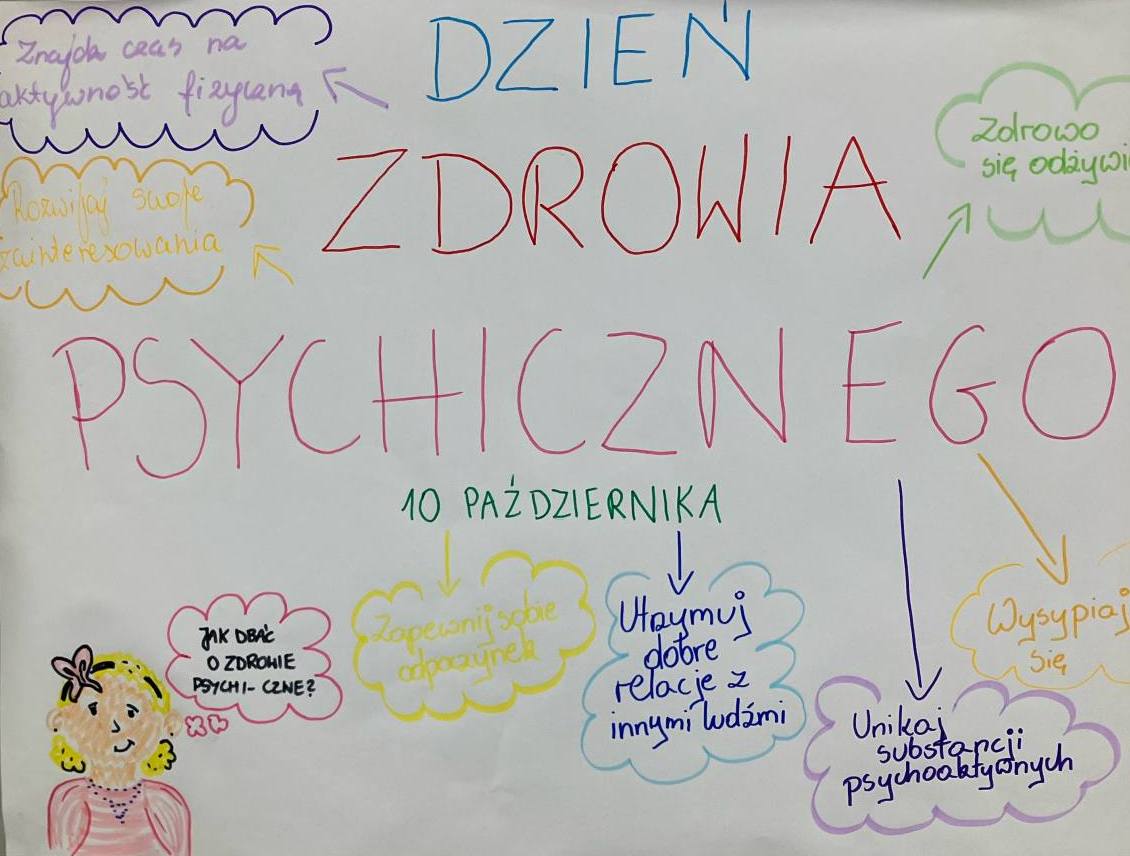 Znajdź czas na
aktywność fizyczną
Rozwijaj swoje
zainteresowania
DZIEŃ
ZDROWIA
PSYCHICZNEGO
10 PAŹDZIERNIKA
Zdrowo
się odżywi
JAK DBAĆ
O ZDROWIE
PSYCHI- CZNE?
Zapewnij sobie
odpoczynek
Utrzymuj
dobre
relacje z
innymi ludźmi
Unikaj
substancji
psychoaktywnych
Wysypiaj
się